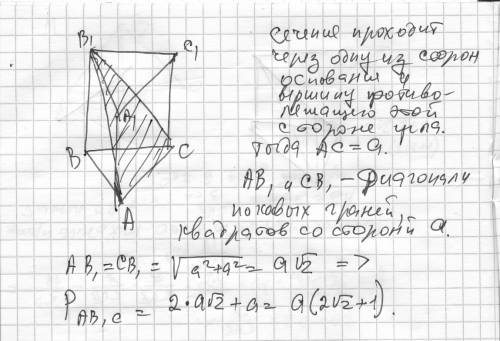 B₁
C₁
A₁
B
C
A
сечение проходит
через одну из сторон
основания и
вершину противо-
лежащего этой
стороне угла.
Тогда AC = a.
AB₁ и CB₁ – диагонали
боковых граней,
квадратов со стороной a.
AB₁ = CB₁ = √a²+a² = a√2 =>
P AB₁C = 2·a√2 + a = a(2√2+1).